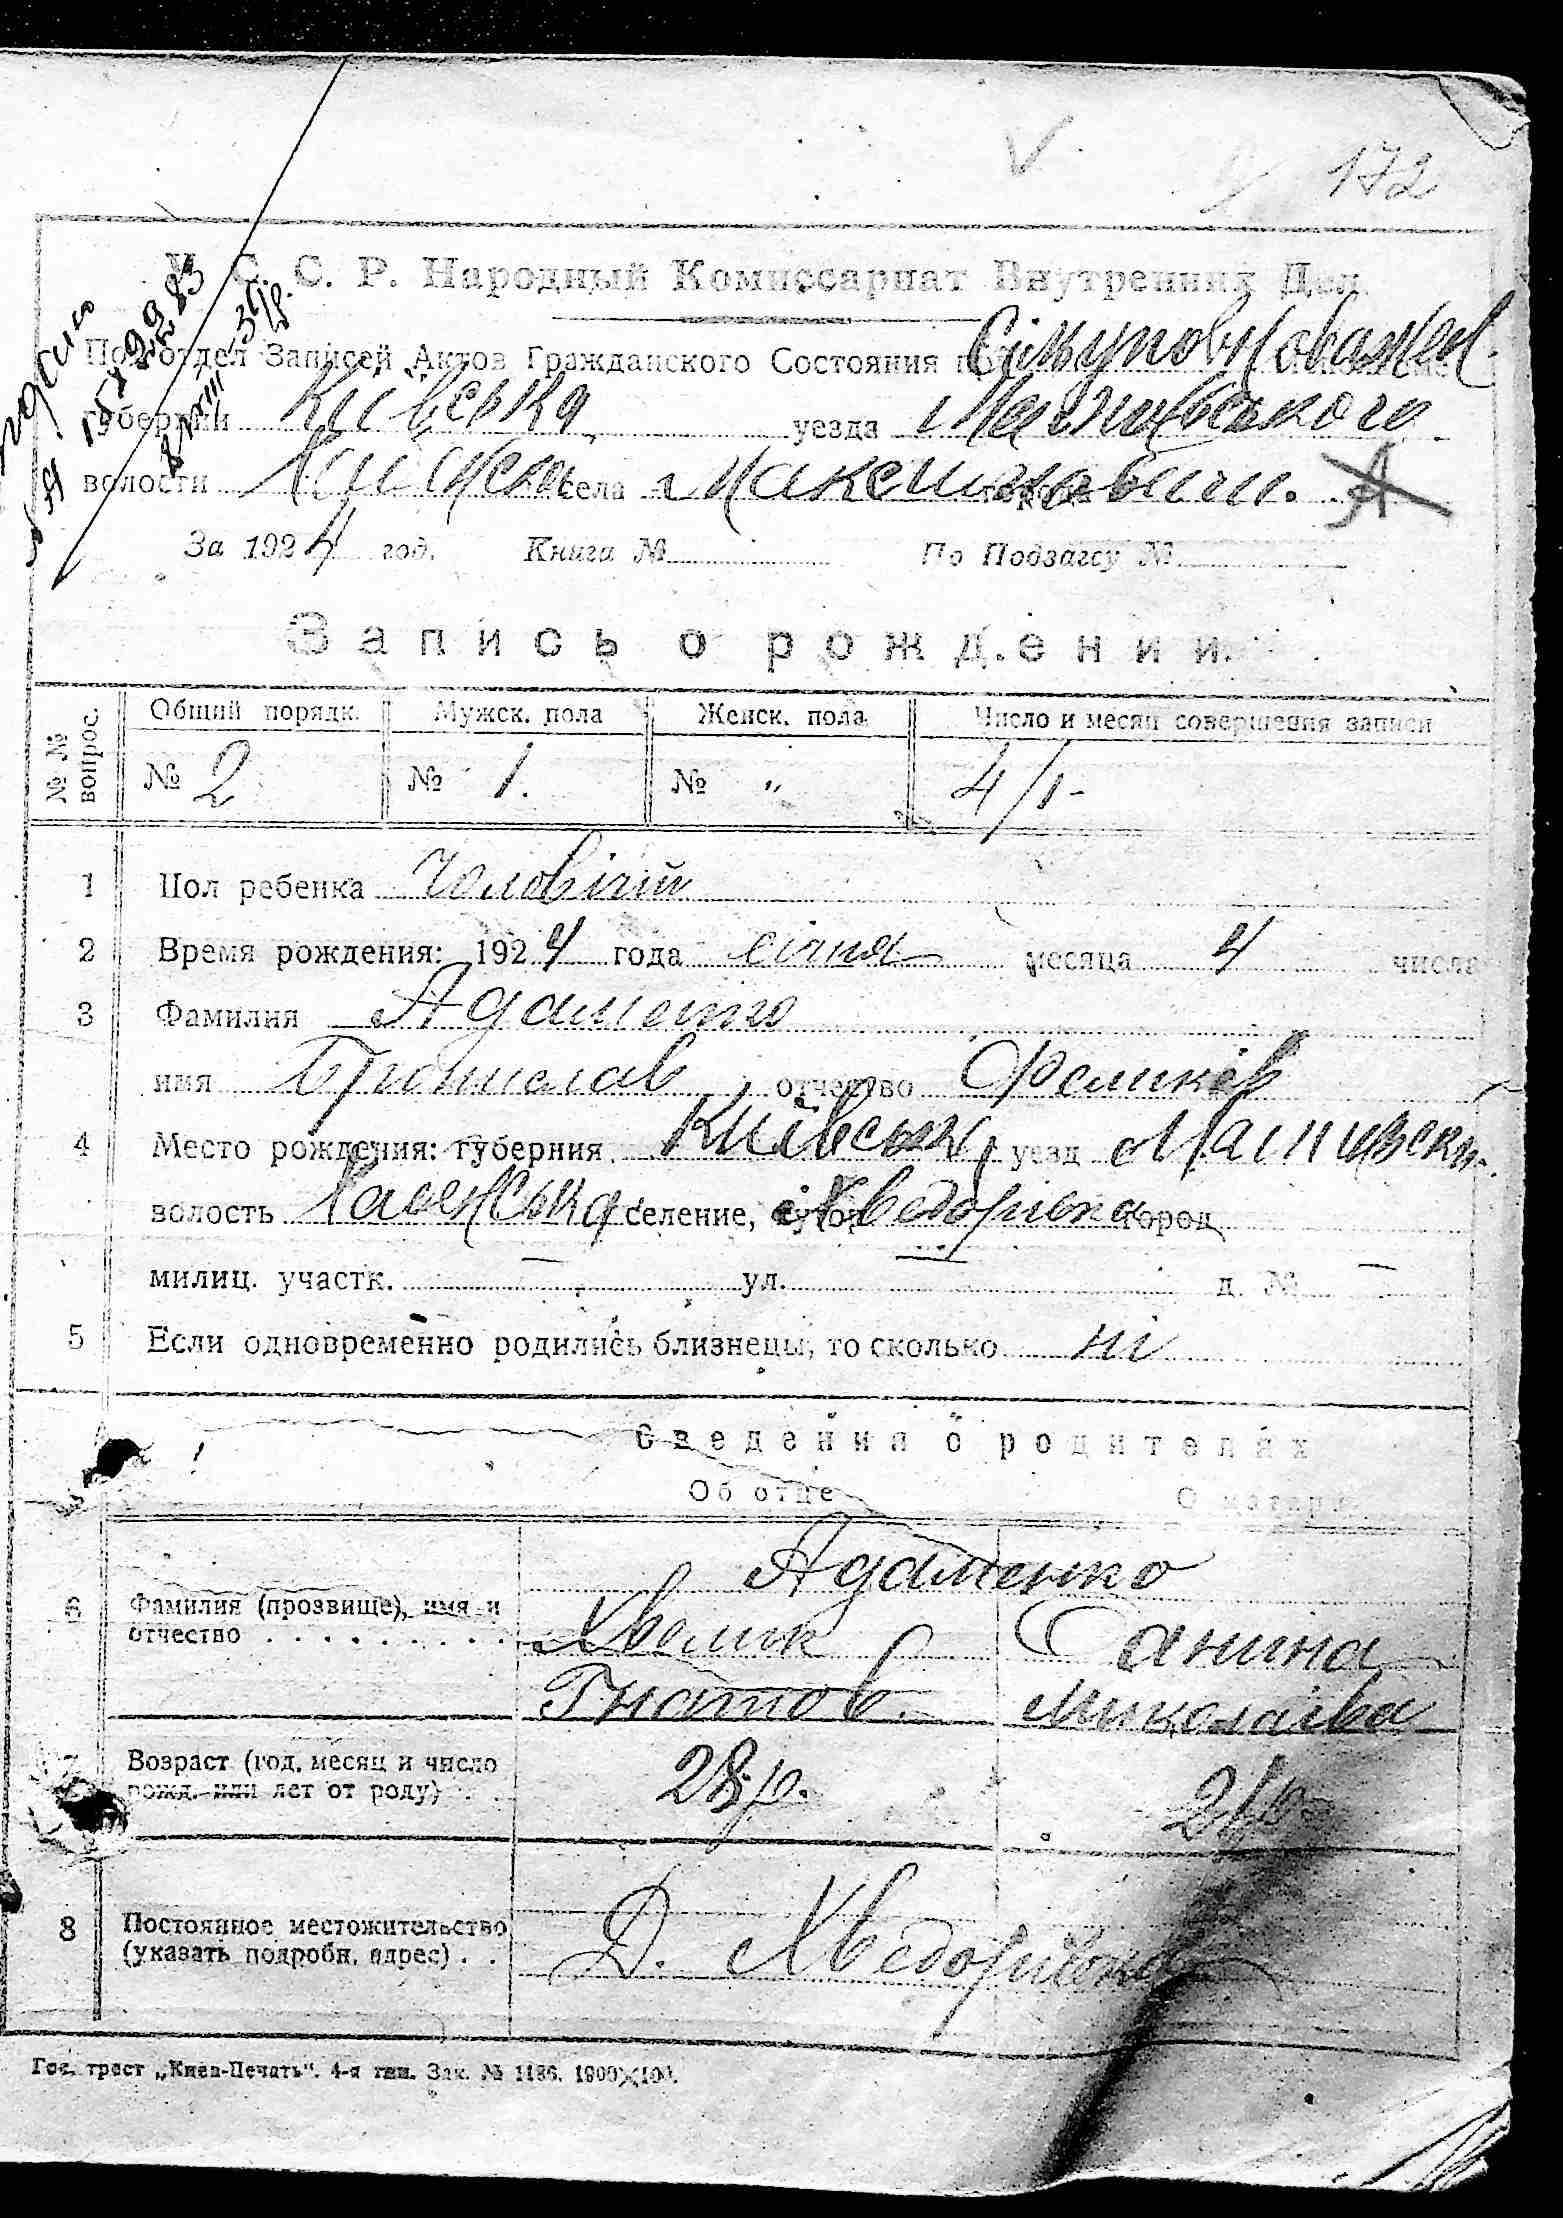 172
У. С. С. Р. Народный Комиссариат Внутренних Дел.
Подотдел Записей Актов Гражданского Состояния при
губернии Київська уезда
волости села Максимовичи.
За 1924 год. Книга № По Подзагсу №
Запись о рождении.
№№ вопрос. Общий порядк. Мужск. пола Женск. пола Число и месяц совершения записи
№ 2 № 1. № " 4/I-
1 Пол ребенка Чоловічий
2 Время рождения: 1924 года січня месяца 4 числа
3 Фамилия Адаменко
имя Бронислав отчество Феликсів
4 Место рождения: губерния Київськ, уезд
волость селение, хутор Хведорівка город
милиц. участк. — ул. — д. № —
5 Если одновременно родились близнецы, то сколько ні
Сведения о родителях
Об отце О матери
Адаменко
6 Фамилия (прозвище), имя и Хвелик Санина
отчество . . . . . . . . . . Гнатов. Миколаівва
7 Возраст (год, месяц и число 28 р.
рожд. или лет от роду) . .
8 Постоянное местожительство Д. Хведорівка
(указать подробн. адрес) . .
Гос. трест „Киев-Печать". 4-я тип. Зак. № 1186. 1900×100.